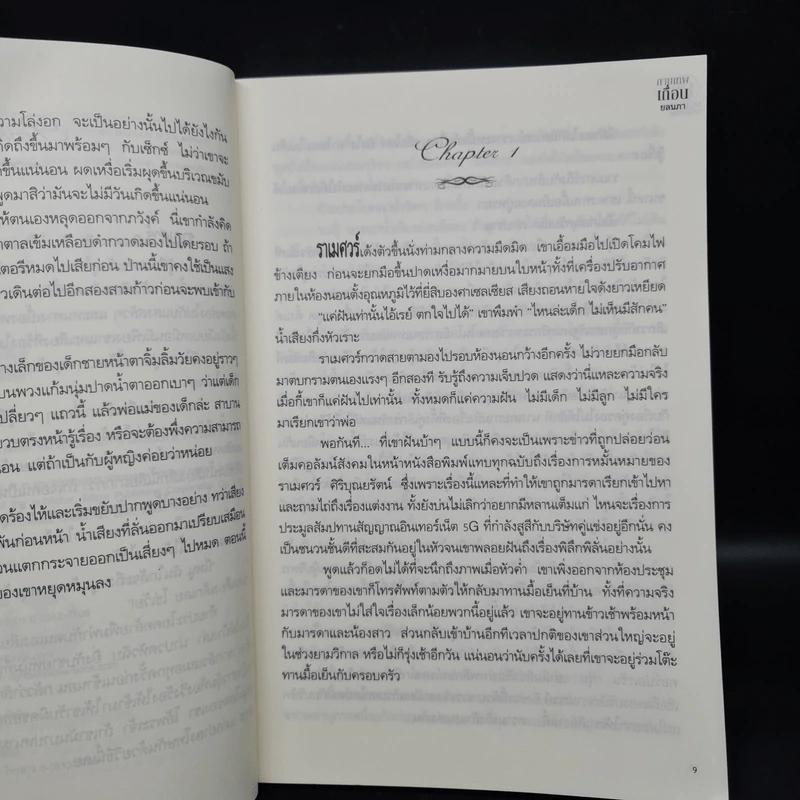 ความโล่งอก จะเป็นอย่างนั้นไปได้ยังไงกัน
คิดถึงขึ้นมาพร้อมๆ กับเซ็กซ์ ไม่ว่าเขาจะ
ขึ้นแน่นอน ผดเหงื่อเริ่มผุดขึ้นบริเวณขมับ
พูดมาสิว่ามันจะไม่มีวันเกิดขึ้นแน่นอน
ให้ตนเองหลุดออกจากภวังค์ นี่เขากำลังคิด
าตาลเข้มเหลือบดำกวาดมองไปโดยรอบ ถ้า
เตอรีหมดไปเสียก่อน ป่านนี้เขาคงใช้เป็นแสง
วเดินต่อไปอีกสองสามก้าวก่อนจะพบเข้ากับ
างเล็กของเด็กชายหน้าตาจิ้มลิ้มวัยคงอยู่ราวๆ
บนพวงแก้มนุ่มปาดน้ำตาออกเบาๆ ว่าแต่เด็ก
เปลี่ยวๆ แถวนี้ แล้วพ่อแม่ของเด็กล่ะ สาบาน
วบตรงหน้ารู้เรื่อง หรือจะต้องพึ่งความสามารถ
นอน แต่ถ้าเป็นกับผู้หญิงค่อยว่าหน่อย
ดร้องไห้และเริ่มขยับปากพูดบางอย่าง ทว่าเสียง
พันก่อนหน้า น้ำเสียงที่ลั่นออกมาเปรียบเสมือน
วนแตกกระจายออกเป็นเสี่ยงๆ ไปหมด ตอนนี้
ของเขาหยุดหมุนลง
กามเทพ
เถื่อน
ยลนภา
Chapter 1
ราเมศวร์เด้งตัวขึ้นนั่งท่ามกลางความมืดมิด เขาเอื้อมมือไปเปิดโคมไฟ
ข้างเตียง ก่อนจะยกมือขึ้นปาดเหงื่อมากมายบนใบหน้าทั้งที่เครื่องปรับอากาศ
ภายในห้องนอนตั้งอุณหภูมิไว้ที่ยี่สิบองศาเซลเซียส เสียงถอนหายใจดังยาวเหยียด
“แค่ฝันเท่านั้นไอ้เรย์ ตกใจไปได้” เขาพึมพำ “ไหนล่ะเด็ก ไม่เห็นมีสักคน”
น้ำเสียงกึ่งหัวเราะ
ราเมศวร์กวาดสายตามองไปรอบห้องนอนกว้างอีกครั้ง ไม่วายยกมือกลับ
มาตบกรามตนเองแรงๆ อีกสองที รับรู้ถึงความเจ็บปวด แสดงว่านี่แหละความจริง
เมื่อกี้เขาก็แค่ฝันไปเท่านั้น ทั้งหมดก็แค่ความฝัน ไม่มีเด็ก ไม่มีลูก ไม่มีใคร
มาเรียกเขาว่าพ่อ
พอกันที... ที่เขาฝันบ้าๆ แบบนี้ก็คงจะเป็นเพราะข่าวที่ถูกปล่อยว่อน
เต็มคอลัมน์สังคมในหน้าหนังสือพิมพ์แทบทุกฉบับถึงเรื่องการหมั้นหมายของ
ราเมศวร์ ศิริบุณยรัตน์ ซึ่งเพราะเรื่องนี้แหละที่ทำให้เขาถูกมารดาเรียกเข้าไปหา
และถามไถ่ถึงเรื่องแต่งงาน ทั้งยังบ่นไม่เลิกว่าอยากมีหลานเต็มแก่ ไหนจะเรื่องการ
ประมูลสัมปทานสัญญาณอินเทอร์เน็ต 5G ที่กำลังสูสีกับบริษัทคู่แข่งอยู่อีกนั่น คง
เป็นชนวนชั้นดีที่สะสมกันอยู่ในหัวจนเขาพลอยฝันถึงเรื่องพิลึกพิลั่นอย่างนั้น
พูดแล้วก็อดไม่ได้ที่จะนึกถึงภาพเมื่อหัวค่ำ เขาเพิ่งออกจากห้องประชุม
และมารดาของเขาก็โทรศัพท์ตามตัวให้กลับมาทานมื้อเย็นที่บ้าน ทั้งที่ความจริง
มารดาของเขาไม่ใส่ใจเรื่องเล็กน้อยพวกนี้อยู่แล้ว เขาจะอยู่ทานข้าวเช้าพร้อมหน้า
กับมารดาและน้องสาว ส่วนกลับเข้าบ้านอีกทีเวลาปกติของเขาส่วนใหญ่จะอยู่
ในช่วงยามวิกาล หรือไม่ก็รุ่งเช้าอีกวัน แน่นอนว่านับครั้งได้เลยที่เขาจะอยู่ร่วมโต๊ะ
ทานมื้อเย็นกับครอบครัว
9